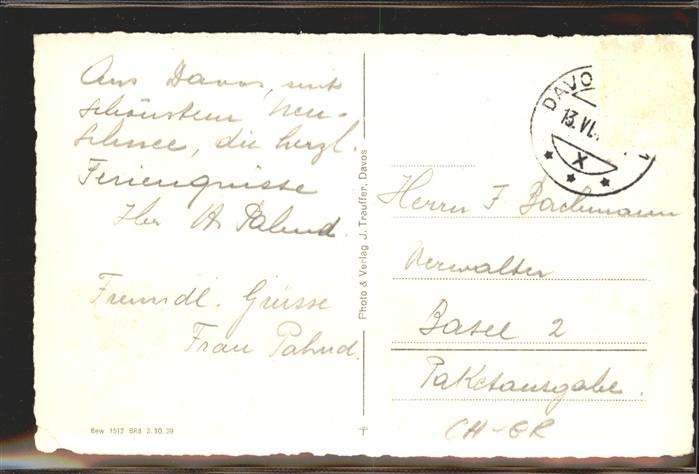 Aus Davos, mits
schönstem Neu-
schnee, die herzl.
Feriengrüsse
Ihr A Pahud.
Freundl. Grüsse
Frau Pahud.
Bew 1512 BRB 3.10.39
Photo & Verlag J. Trauffer, Davos
DAVO
13.VI.
X
Herrn F Bachmann
Verwalter
Basel 2
Paketausgabe.
CH-GR